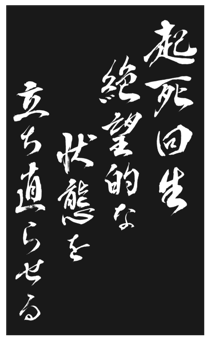 起死回生
絶望的な
状態を
立ち直らせる